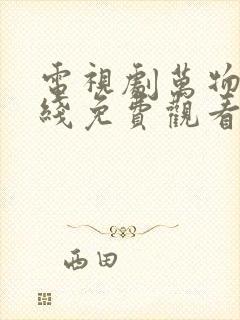 電視劇萬物
綫免費觀看
西田